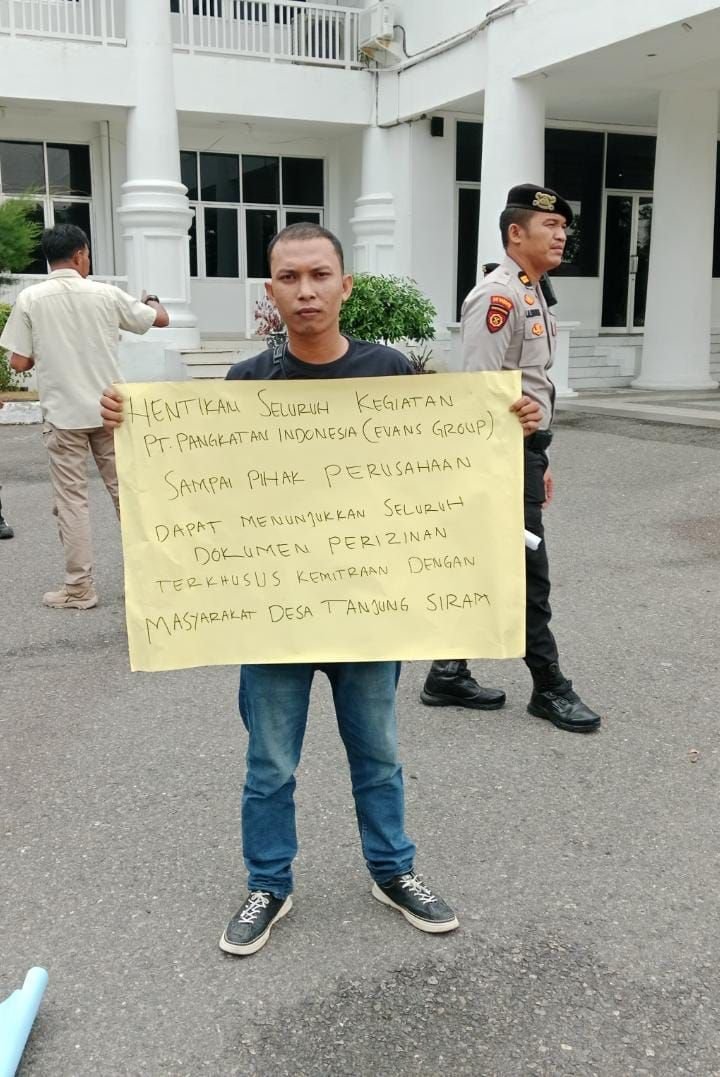 HENTIKAN SELURUH KEGIATAN
PT. PANGKATAN INDONESIA (EVANS GROUP)
SAMPAI PIHAK PERUSAHAAN
DAPAT MENUNJUKKAN SELURUH
DOKUMEN PERIZINAN
TERKHUSUS KEMITRAAN DENGAN
MASYARAKAT DESA TANJUNG SIRAM